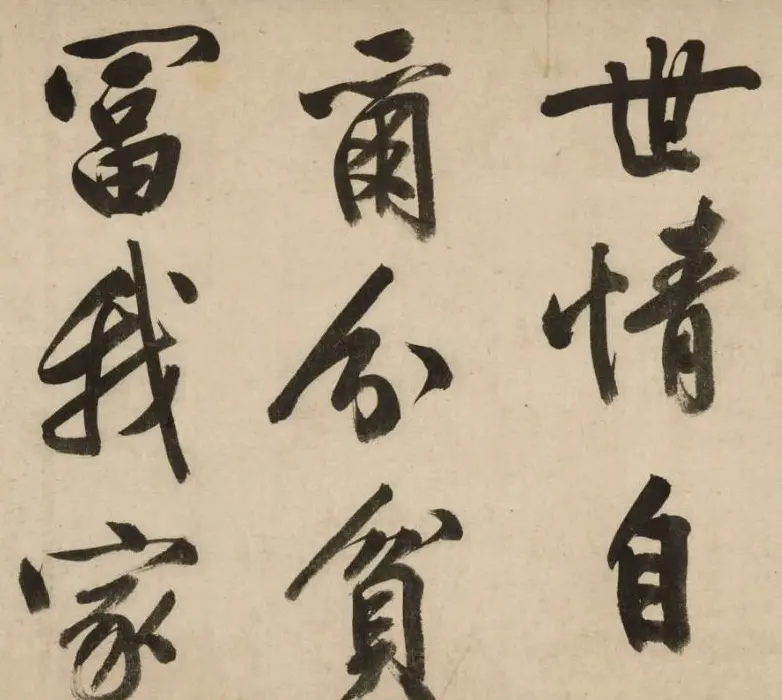 世情自
爾分貧
冨我家